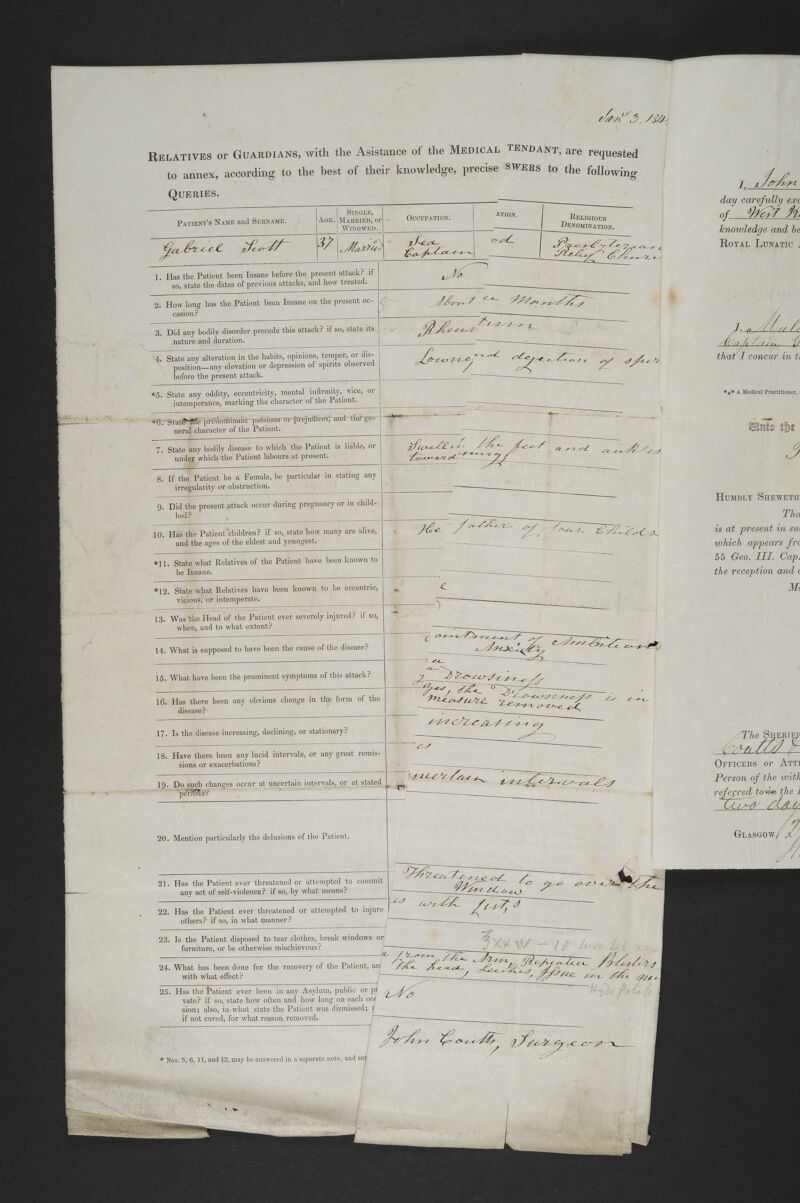 Jany 3. 184
RELATIVES or GUARDIANS, with the Asistance of the MEDICAL TENDANT, are requested
to annex, according to the best of their knowledge, precise SWERS to the following
QUERIES.
PATIENT'S NAME and SURNAME. AGE. SINGLE, MARRIED, or WIDOWED. OCCUPATION. ATION. RELIGIOUS DENOMINATION.
Gabriel Scott 37 Married Sea Captain od Presbyterian
1. Has the Patient been Insane before the present attack? if
so, state the dates of previous attacks, and how treated.
No
2. How long has the Patient been Insane on the present oc-
casion?
About Months
3. Did any bodily disorder precede this attack? if so, state its
nature and duration.
Rheu tism
4. State any alteration in the habits, opinions, temper, or dis-
position—any elevation or depression of spirits observed
before the present attack.
Lowne nd dejection of spir
*5. State any oddity, eccentricity, mental infirmity, vice, or
intemperance, marking the character of the Patient.
*6. State the predominant passions or prejudices, and the ge-
neral character of the Patient.
7. State any bodily disease to which the Patient is liable, or
under which the Patient labours at present.
Swellin the feet and ankles
toward
8. If the Patient be a Female, be particular in stating any
irregularity or obstruction.
9. Did the present attack occur during pregnancy or in child-
bed?
10. Has the Patient children? if so, state how many are alive,
and the ages of the eldest and youngest.
He father of four Child
*11. State what Relatives of the Patient have been known to
be Insane.
*12. State what Relatives have been known to be eccentric,
vicious, or intemperate.
13. Was the Head of the Patient ever severely injured? if so,
when, and to what extent?
14. What is supposed to have been the cause of the disease?
ointment of Ambition
Anxiety
15. What have been the prominent symptoms of this attack?
Drowsiness
16. Has there been any obvious change in the form of the
disease?
Yes, the Drowsiness is in
measure removed
17. Is the disease increasing, declining, or stationary?
increasing
18. Have there been any lucid intervals, or any great remis-
sions or exacerbations?
es
19. Do such changes occur at uncertain intervals, or at stated
periods?
uncertain intervals
20. Mention particularly the delusions of the Patient.
21. Has the Patient ever threatened or attempted to commit
any act of self-violence? if so, by what means?
Threatened to go over the
Window
22. Has the Patient ever threatened or attempted to injure
others? if so, in what manner?
es with fists
23. Is the Patient disposed to tear clothes, break windows or
furniture, or be otherwise mischievous?
24. What has been done for the recovery of the Patient, an
with what effect?
from the Arm, Repeated Blisters
the head, Leeches, Issue in the
25. Has the Patient ever been in any Asylum, public or pr
vate? if so, state how often and how long on each occ
sion; also, in what state the Patient was dismissed;
if not cured, for what reason removed.
No
John Coutts, Surgeon
* Nos. 5, 6, 11, and 12, may be answered in a separate note, and se
I, John
day carefully exa
of West
knowledge and be
ROYAL LUNATIC
I, a
Captain
that I concur in t
*** A Medical Practitioner,
Unto the
HUMBLY SHEWETH
Tha
is at present in su
which appears fro
55 Geo. III. Cap.
the reception and
M
The SHERIFF
Coutts &
OFFICERS or ATT
Person of the with
referred to in the
two day
GLASGOW,